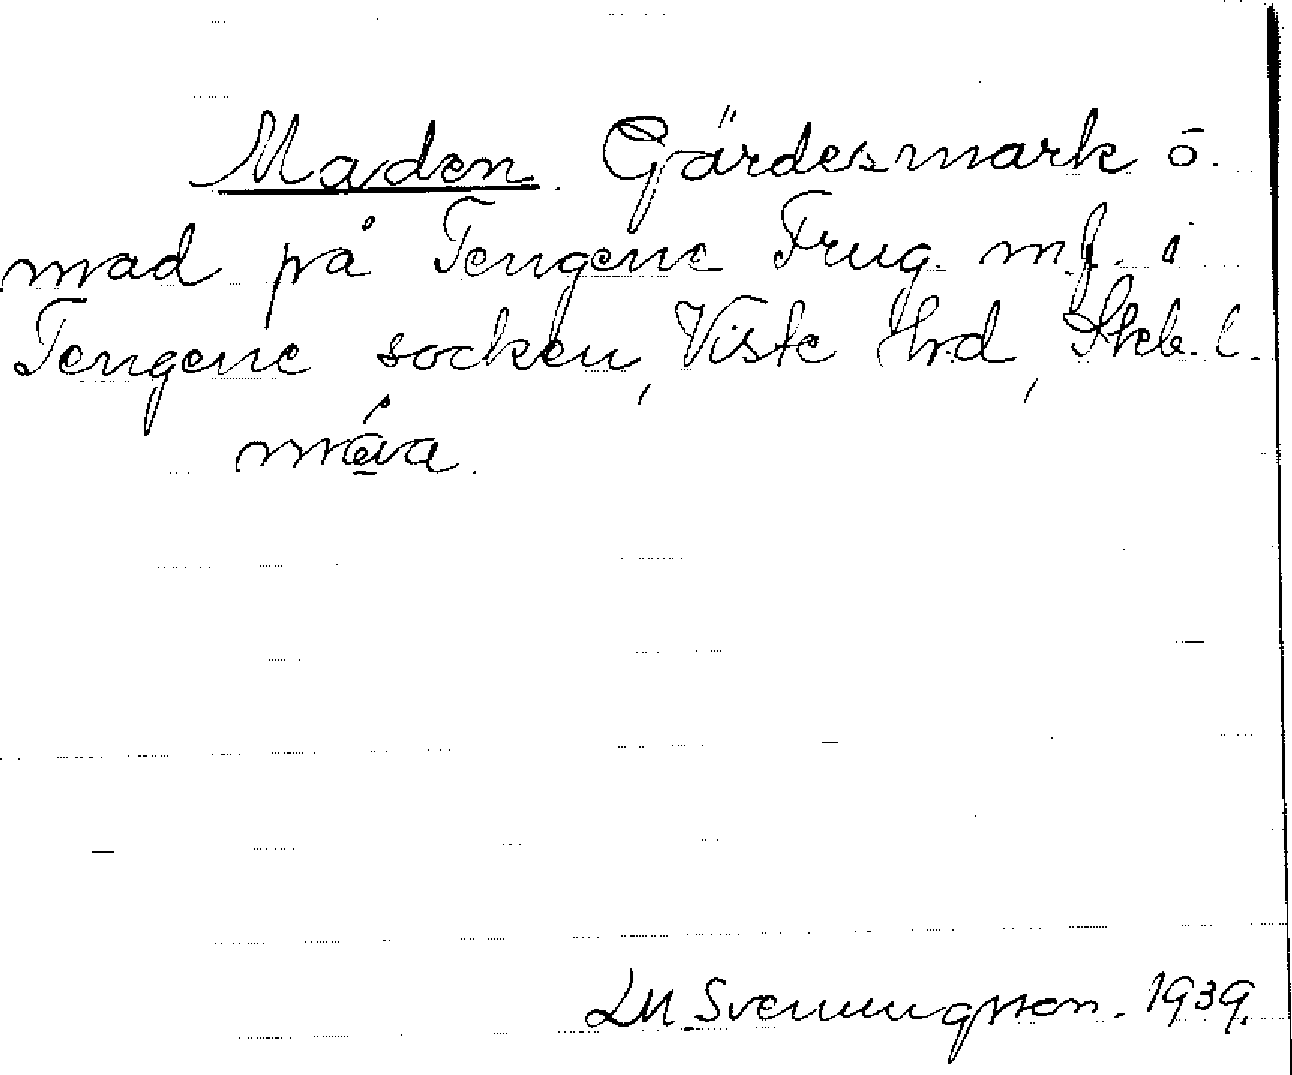 Maden. Gärdesmark ö.
mad på Tengene Frug. m.fl. i
Tengene socken, Viste hrd, Skb. l.
måva.
LM Svenungsson. 1939.